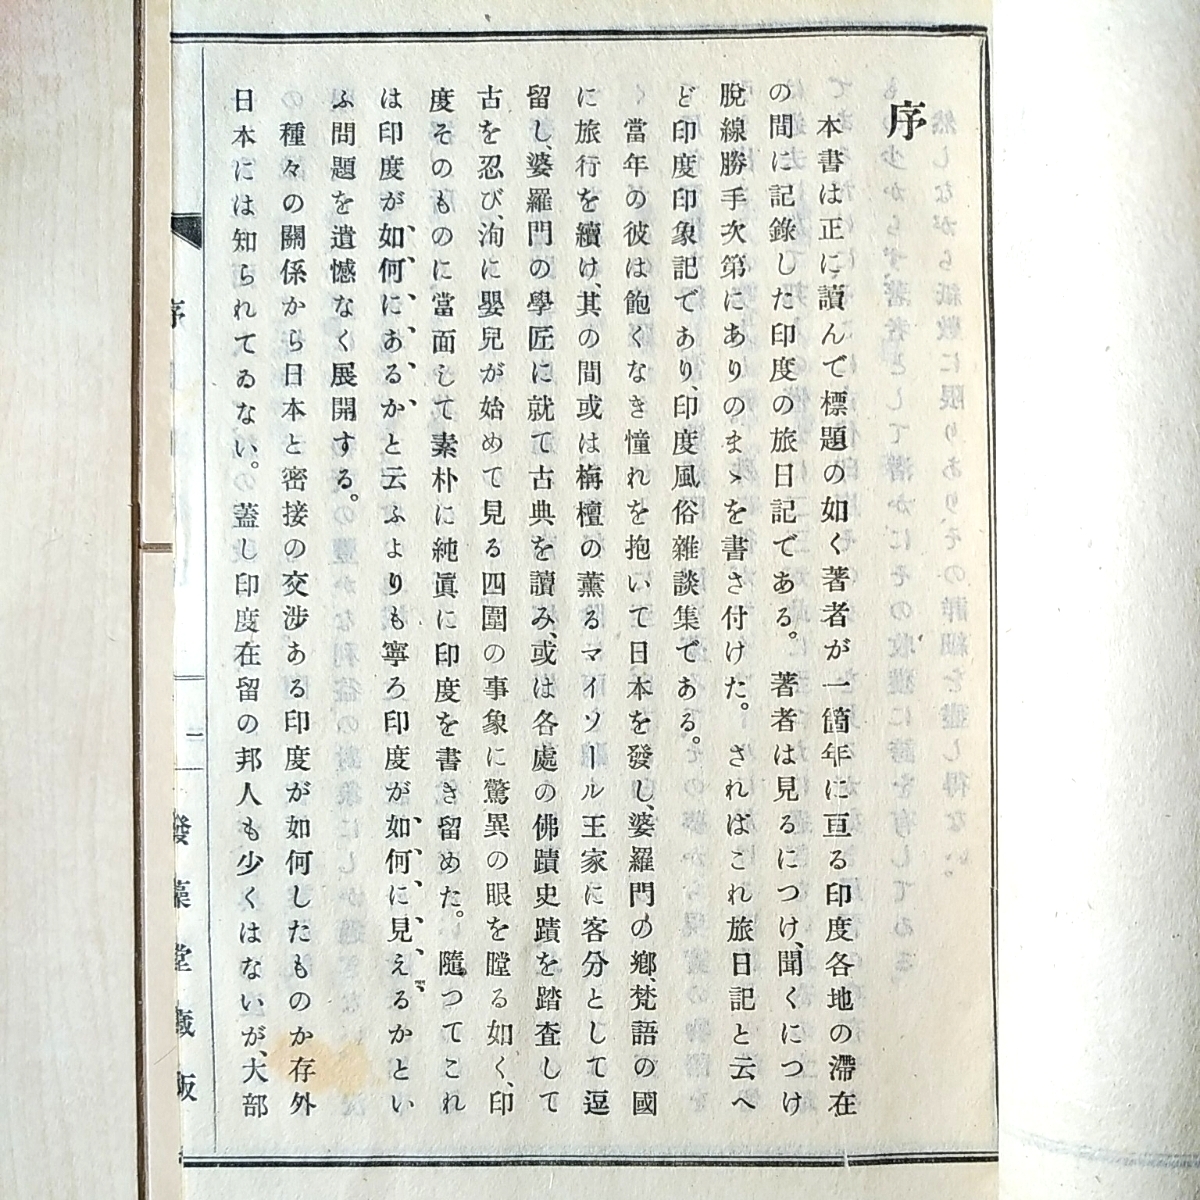 序
本書は正に讀んで標題の如く著者が一箇年に亘る印度各地の滯在
の間に記錄した印度の旅日記である。著者は見るにつけ、聞くにつけ
脫線勝手次第にありのまゝを書き付けた。さればこれ旅日記と云へ
ど印度印象記であり、印度風俗雜談集である。
當年の彼は飽くなき憧れを抱いて日本を發し、婆羅門の鄕、梵語の國
に旅行を續け、其の間或は栴檀の薰るマイソール王家に客分として逗
留し、婆羅門の學匠に就て古典を讀み、或は各處の佛蹟史蹟を踏査して
古を忍び、洵に嬰兒が始めて見る四圍の事象に驚異の眼を瞠る如く、印
度そのものに當面して素朴に純眞に印度を書き留めた。隨つてこれ
は印度が如何にあるかと云ふよりも寧ろ印度が如何に見えるかとい
ふ問題を遺憾なく展開する。
種々の關係から日本と密接の交涉ある印度が如何したものか存外
日本には知られてゐない。蓋し印度在留の邦人も少くはないが、大部
序
一
發藻堂藏版